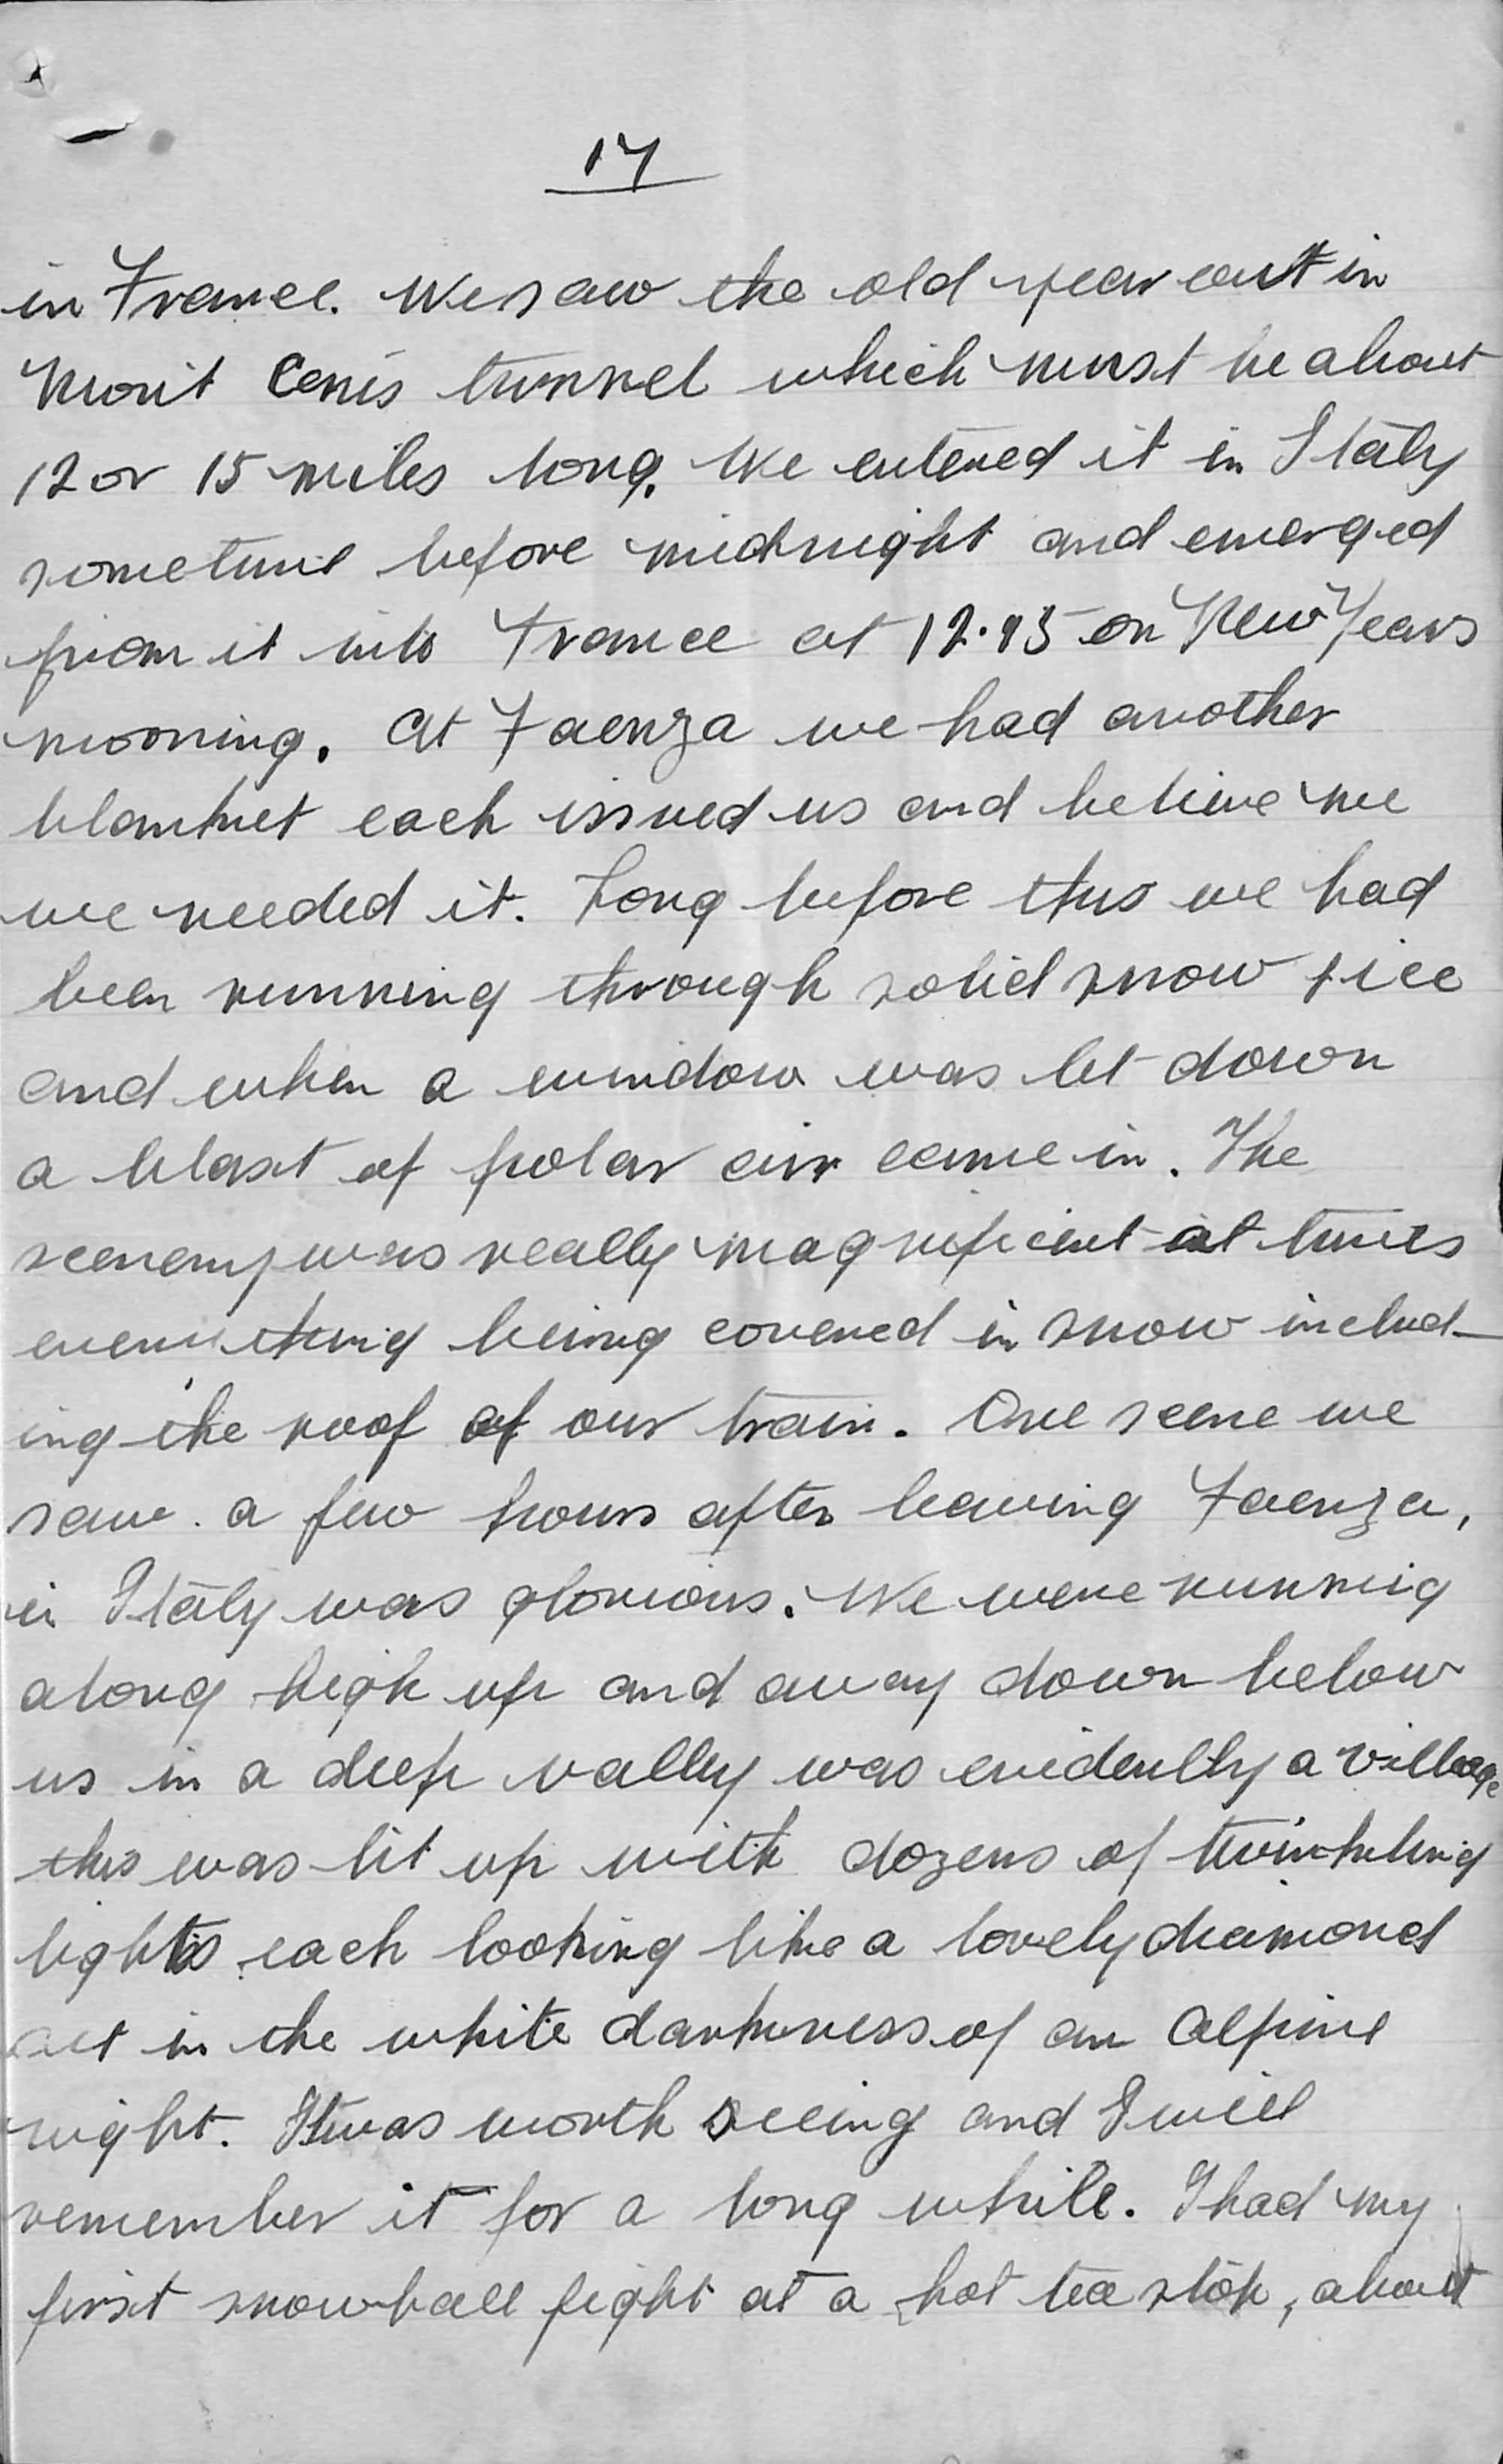 17
in France. We saw the old year out in
Mont Cenis tunnel which must be about
12 or 15 miles long. We entered it in Italy
sometime before midnight and emerged
from it into France at 12.15 on New Years
morning. At Faenza we had another
blanket each issued us and believe me
we needed it. Long before this we had
been running through solid snow + ice
and when a window was let down
a blast of polar air came in. The
scenery was really magnificent at times
everything being covered in snow includ-
ing the roof of our train. One scene we
saw a few hours after leaving Faenza,
in Italy was glorious. We were running
along high up and away down below
us in a deep valley was evidently a village
this was lit up with dozens of twinkling
lights each looking like a lovely diamond
set in the white darkness of an Alpine
night. It was worth seeing and I will
remember it for a long while. I had my
first snowball fight at a hot tea stop, about